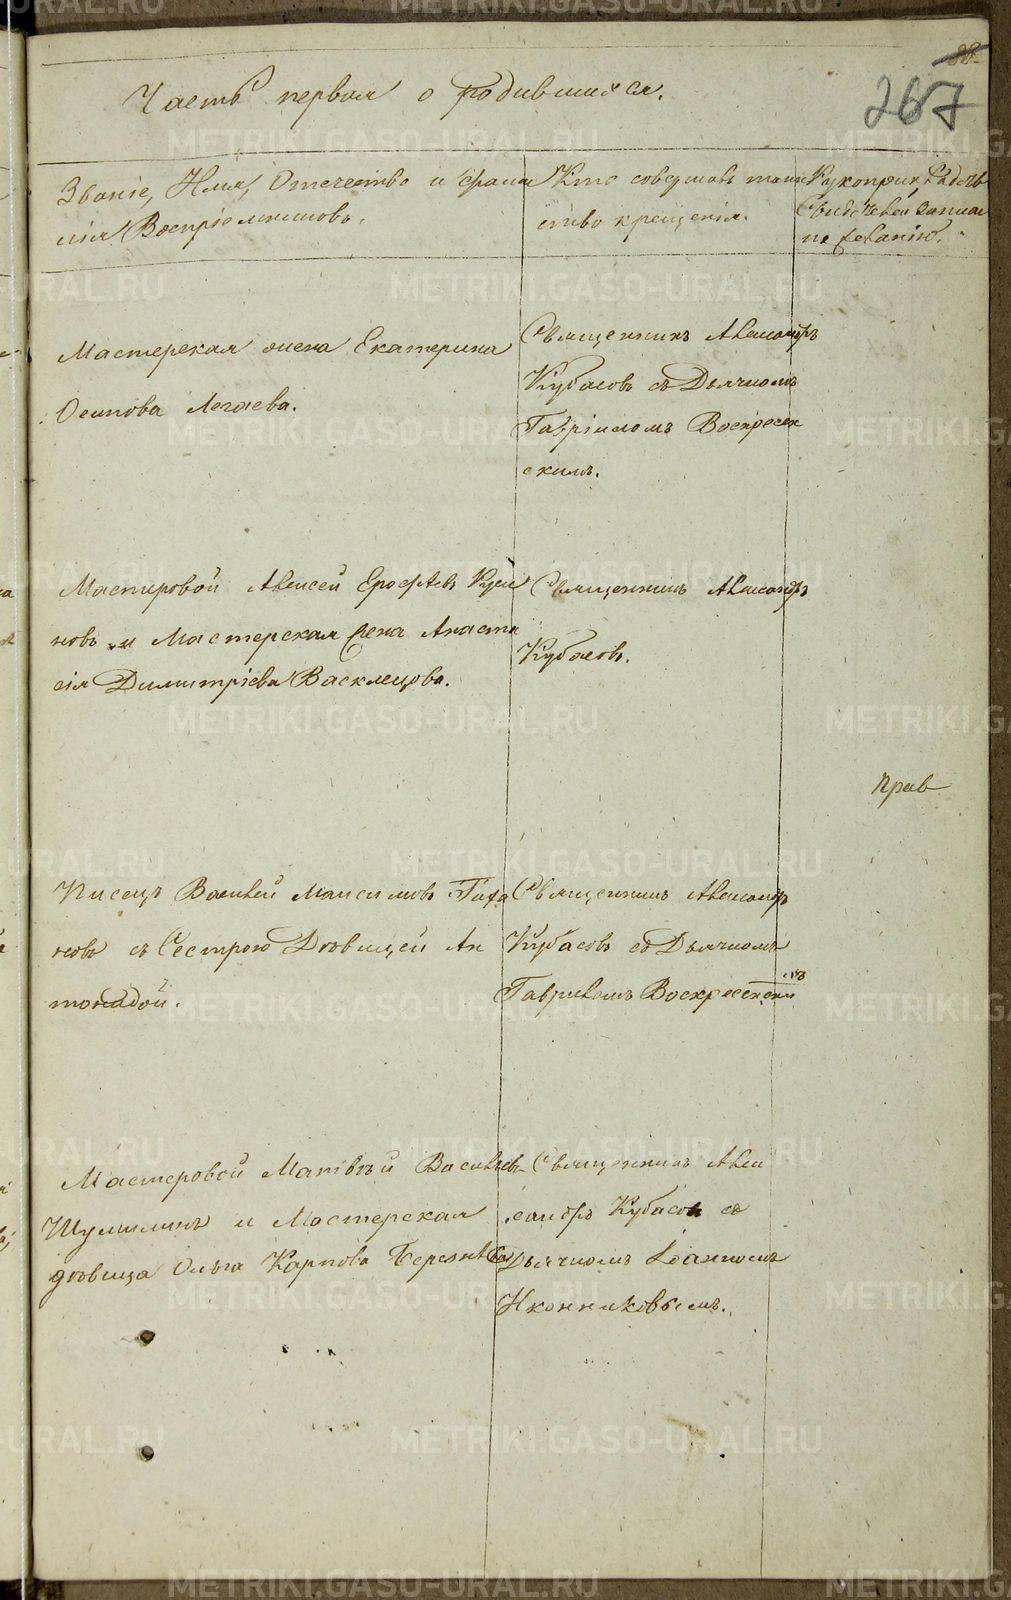 267
Часть первая о родившихся.
Званіе, Имя, Отечество и Фами
лія Воспріемниковъ.
Кто совершалъ таин
ство крещенія.
Рукоприк
Свидѣ записи
по желанію.
Мастерская жена Екатерина
Осипова Легаева.
Священникъ Александръ
Кубасовъ съ Дьячкомъ
Гавріиломъ Воскресен
скимъ.
Мастеровой Алексей Ерофѣевъ
новъ и Мастерская жена Анаста
сія Димитріева Васклецова.
Священникъ Александръ
Кубасовъ.
Прав
Писецъ Василей Максимовъ
новъ съ Сестрою Дѣвицей Ан
тонидой.
Священникъ Александръ
Кубасовъ съ Дьячкомъ
Гавриломъ Воскресенским
Мастеровой Матвѣй Васильевъ
Шумилинъ и Мастерская
дѣвица Ольга Карпова
Священникъ Алек
сандръ Кубасовъ съ
Дьячкомъ Іоанномъ
Иконниковымъ.
METRIKI.GASO-URAL.RU